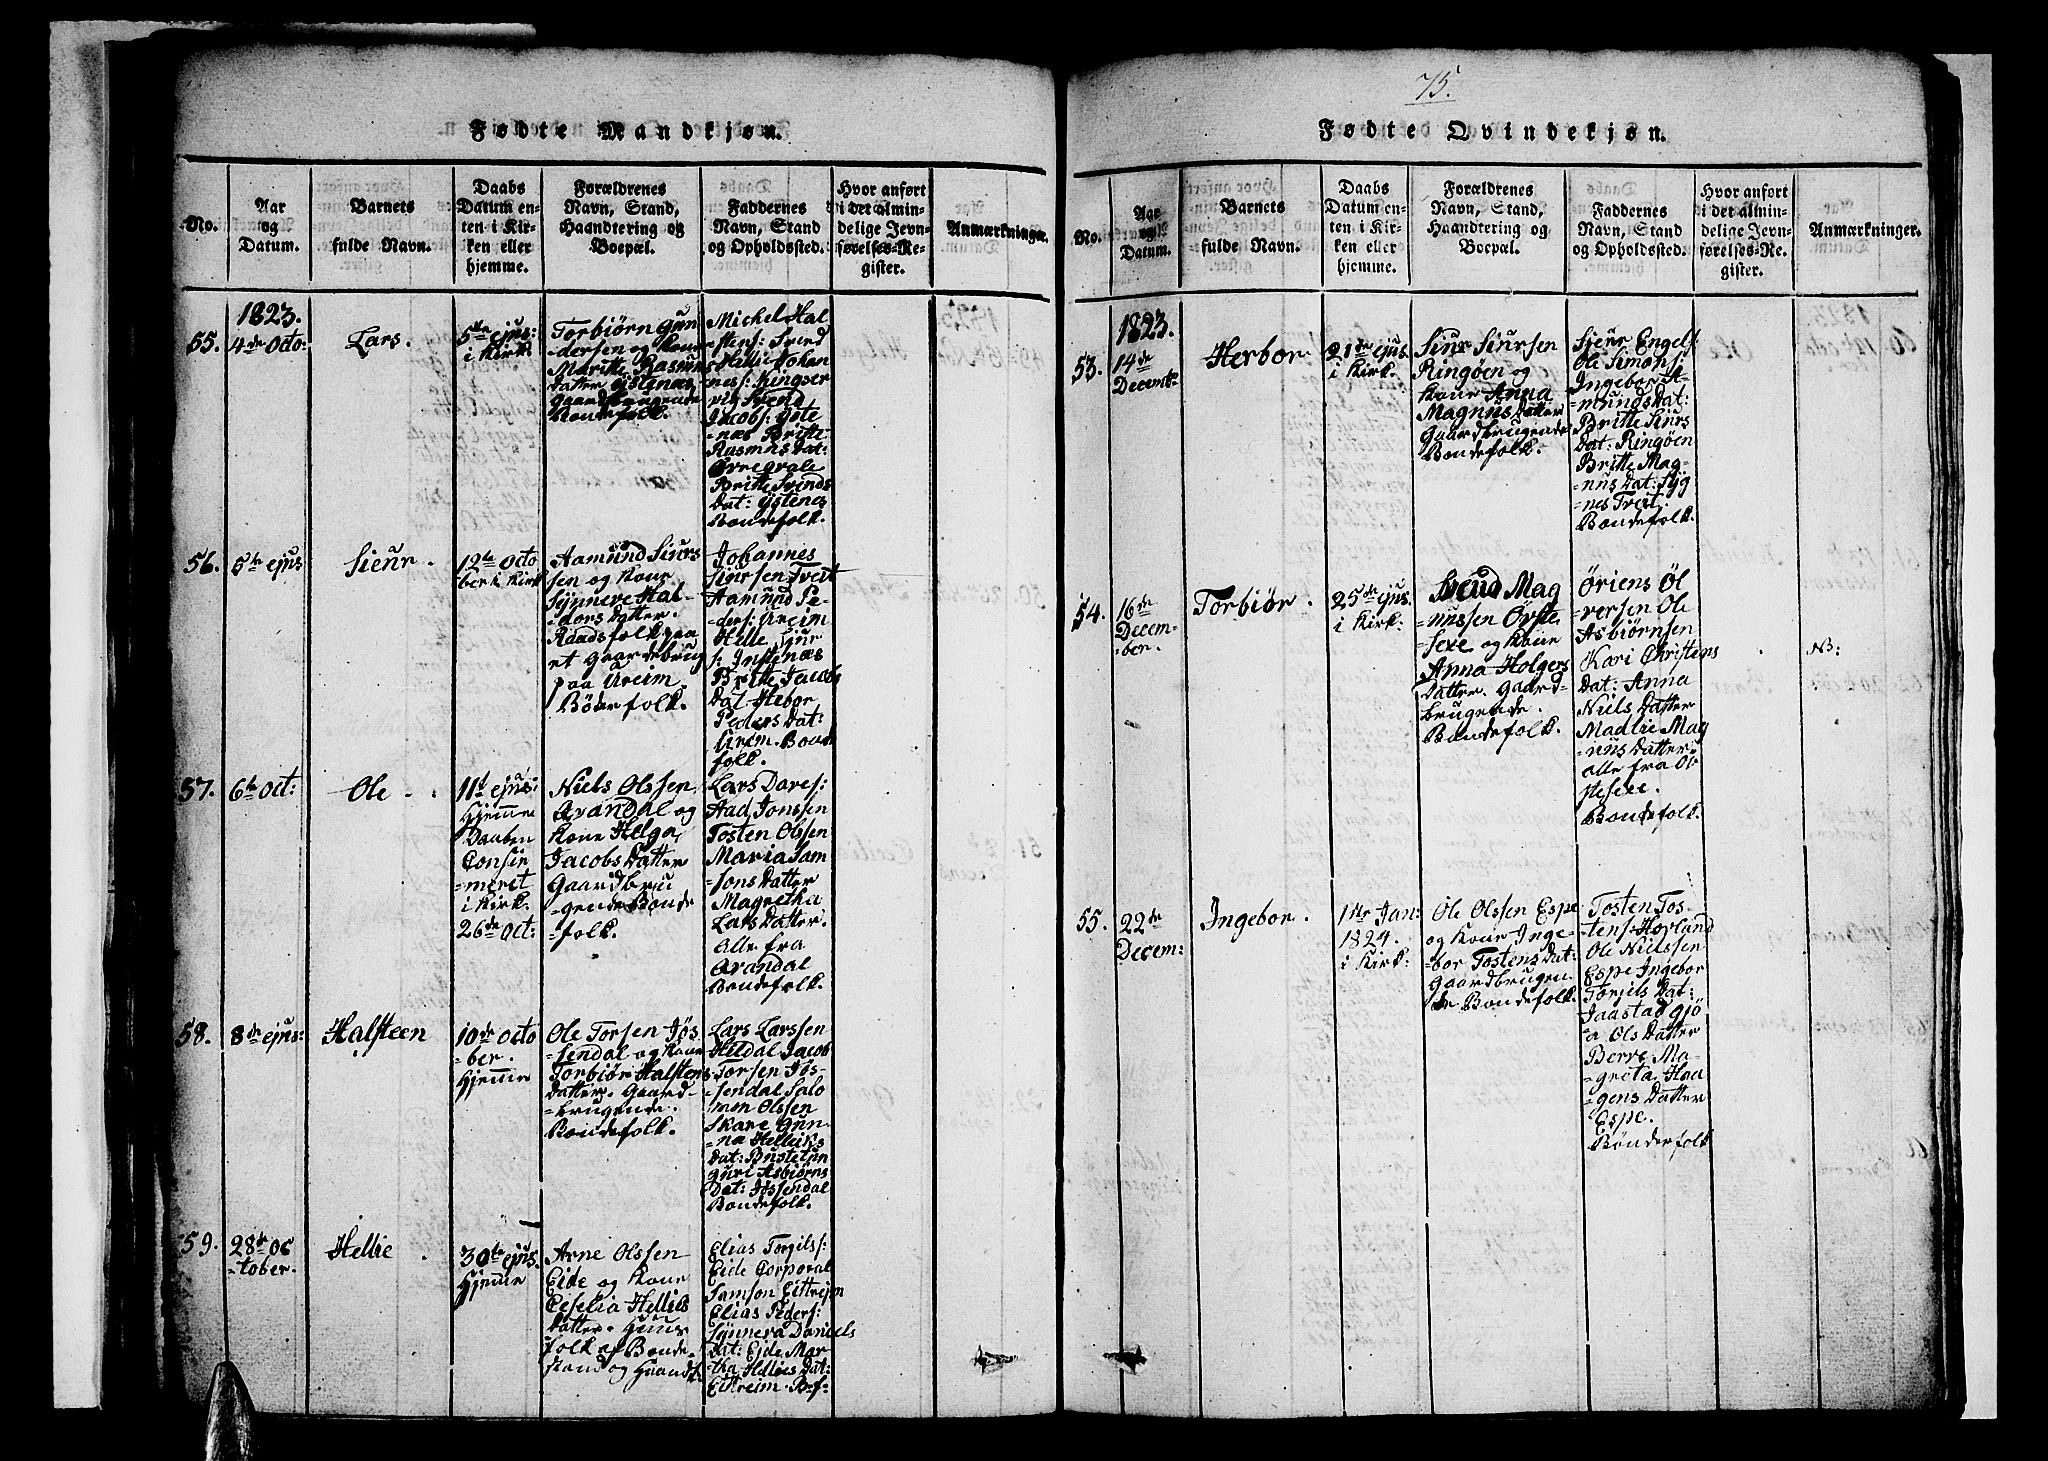 Fødte Mandkjøn.
No.
Aar
og
Datum.
Barnets
fulde Navn.
Daabs
Datum en-
ten i Kir-
ken eller
hjemme.
Forældrenes
Navn, Stand,
Haandtering og
Boepæl.
Faddernes
Navn, Stand
og Opholdssted.
Hvor anført
i det almin-
delige Jevn-
førelses-Re-
gister.
Anmærkninger.
1823.
55.
4de Octo:
Lars.
5te ejus:
i Kirk:
Torbiørn Gun
dersen og Kone
Maritte Rasmus
Datter Ystenæs
Gaardbrugende
Bondefolk.
Michel Hal
stens:
Hallie Johan
nes: Kingser
vig Svend
Jacobs: Yste
=næs Britte
Rasmus Dat:
Britte Svinds
Dat: Ystenes
Bondefolk.
56.
5te ejus
Sieur.
12te Octo
ber i Kirk
Aamund Siurs
sen og Kone
Synneve Hal-
dors Datter.
Raadsfolk paa
et Gaardebrug
paa Ureim.
Bøndefolk.
Johannes
Siursen Treit
Aamund Pe-
ders: Ureim
Helle Siur
s: Instenæs
Britte Jacobs
Dat Hebor
Peders Dat:
Ureim. Bonde
folk.
57.
6te Oct:
Ole
11t ejus:
Hjemme
Daaben
Confir
=meret
i Kirk.
26de Oct:
Niels Olssen
Arandal og
Kone Helga
Jacobs Datter
Gaardbru
=gende Bonde
=folk.
Lars Dares:
Aad Jonssen
Tosten Olssen
Maria Sam
=sons Datter
Magretha
Lars Datter.
Alle fra
Arandal
Bondefolk.
58.
8de ejus:
Halsteen
10de Octo
=ber.
Hjemme
Ole Torsen Jøs
sendal og Kone
Torbiør Halstens
Datter. Gaard-
=brugende.
Bondefolk.
Lars Larssen
Hildal Jacob
Torsen Jøs-
sendal Salo
mon Olssen
Skare Gun
=na Helliks
Dat: Bustetun
Guri Asbiørns
Dat: Jøssendal
Bondefolk.
59.
28de Oc
=tober.
Hellie
30te ejus.
Hjemme
Arne Olssen
Eide og Kone
Ceselia Hellies
Datter. Huus
folk af Bonde-
stand og Haandt.
Elias Torgils:
Eide Corporal
Samson Eitrejm
Elias Peders:
Synnera Daniels
Dat: Ejde Mar
tha Hellies Dat:
Eitreim. B:f:
75.
Fødte Qvindekjøn.
No.
Aar
og
Datum.
Barnets
fulde Navn.
Daabs
Datum en-
ten i Kir-
ken eller
hjemme.
Forældrenes
Navn, Stand,
Haandtering og
Boepæl.
Faddernes
Navn, Stand
og Opholdssted.
Hvor anført
i det almin-
delige Jevn-
førelses-Re-
gister.
Anmærkninger.
1823.
53.
14de
Decemb:
Herbor
21de ejus.
i Kirk.
Siur Siursen
Ringøen og
Kone Anna
Magnus Datter
Gaardbrugende
Bondefolk.
Sjeur Engels:
Ole Simons:
Ingebor A-
=munds Dat:
Britte Siurs
Dat: Ringøen
Britte Mag-
=nus Dat: Syg
nes Treit.
Bondefolk.
54.
16de
Decem=
=ber.
Torbiør.
25de ejus.
i Kirk:
Svend Mag
=nussen Øyste
sexe og Kone
Anna Holgers
Datter. Gaard-
brugende.
Bondefolk.
Øriens Øl
versen Ole
Asbiørnsen
Kari Christens
Dat: Anna
Niels Datter
Madlie Mag
=nus Datter.
alle fra Øi
stesexe.
Bondefolk.
NB:
55.
22de
Decem:
Ingebor.
1ste Jan:
1824.
i Kirk:
Ole Olssen Espe
og Kone Inge-
bor Tostens Dat:
Gaardbrugen
de Bondefolk.
Tosten Tos-
tens: Hovland
Ole Nielssen
Espe Ingebor
Torgils Dat:
Jaastad Gjø
a Ols Datter
Berve Ma-
=greta Haa
=gens Datter
Espe.
Bønderfolk